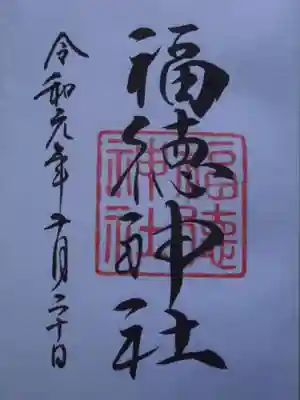 福徳神社
令和元年五月二十日
福徳
神社